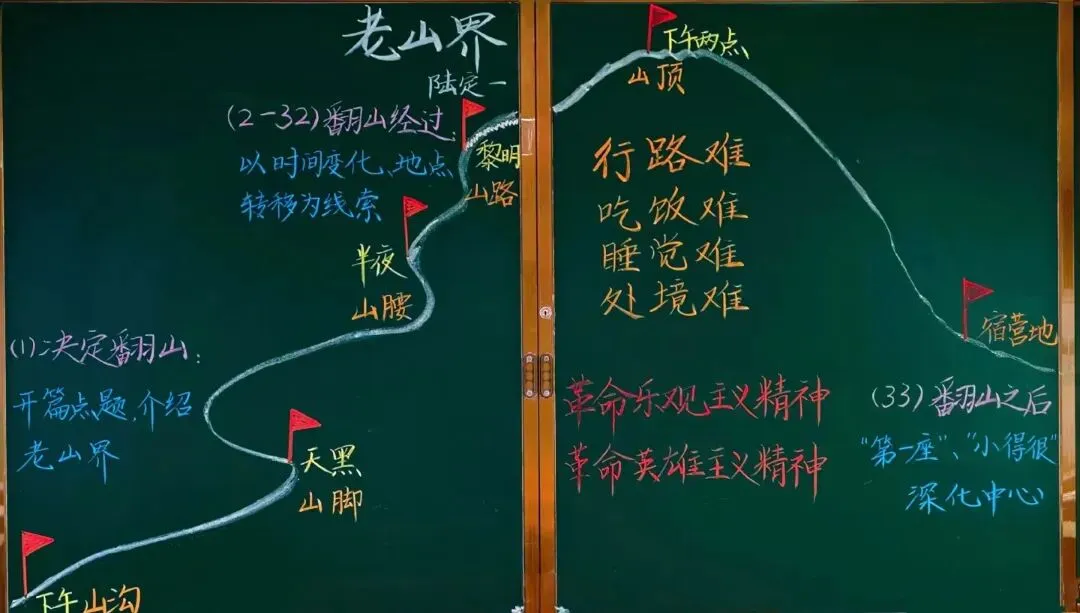 老山界
陆定一
(2-32)翻山经过:
以时间变化、地点
转移为线索
黎明
山路
半夜
山腰
(1)决定翻山:
开篇点题,介绍
老山界
天黑
山脚
下午山沟
下午两点
山顶
行路难
吃饭难
睡觉难
处境难
宿营地
革命乐观主义精神
革命英雄主义精神
(33)翻山之后
“第一座”、“小得很”
深化中心